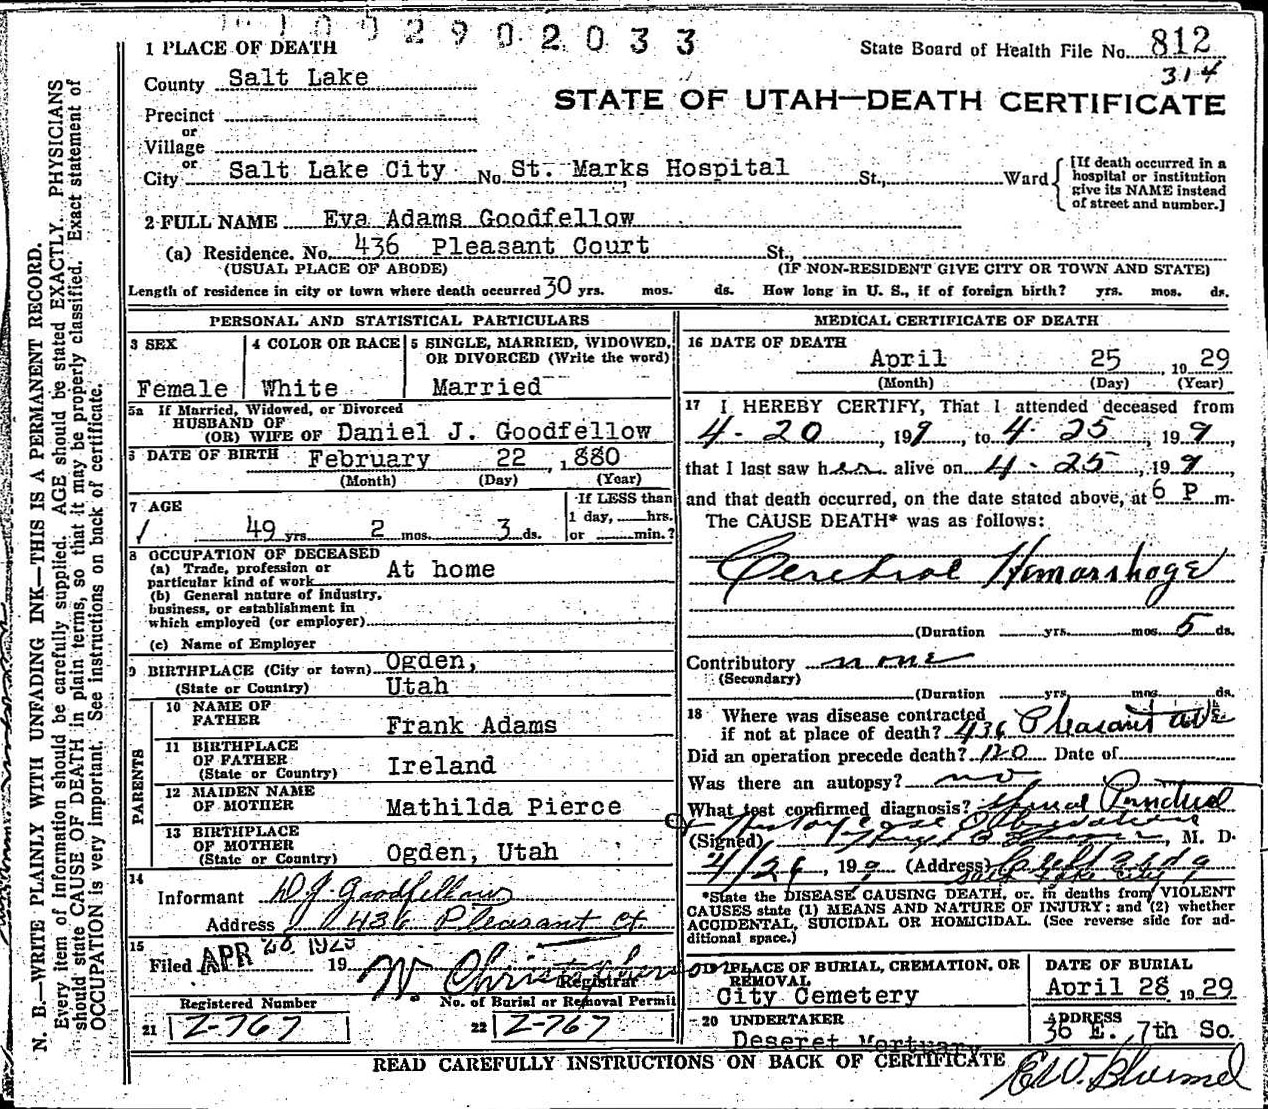 2 9 0 2 0 3 3
1 PLACE OF DEATH
State Board of Health File No. 812
314
County Salt Lake
STATE OF UTAH—DEATH CERTIFICATE
Precinct
or
Village
or
City Salt Lake City No. St. Marks Hospital St., Ward
[If death occurred in a
hospital or institution
give its NAME instead
of street and number.]
2 FULL NAME Eva Adams Goodfellow
(a) Residence. No. 436 Pleasant Court St.,
(USUAL PLACE OF ABODE) (IF NON-RESIDENT GIVE CITY OR TOWN AND STATE)
Length of residence in city or town where death occurred 30 yrs. mos. ds. How long in U. S., if of foreign birth? yrs. mos. ds.
PERSONAL AND STATISTICAL PARTICULARS
3 SEX
Female
4 COLOR OR RACE
White
5 SINGLE, MARRIED, WIDOWED,
OR DIVORCED (Write the word)
Married
5a If Married, Widowed, or Divorced
HUSBAND OF
(OR) WIFE OF Daniel J. Goodfellow
6 DATE OF BIRTH February 22, 1880
(Month) (Day) (Year)
7 AGE
49 yrs. 2 mos. 3 ds.
If LESS than
1 day, hrs.
or min.?
8 OCCUPATION OF DECEASED
(a) Trade, profession or
particular kind of work At home
(b) General nature of industry,
business, or establishment in
which employed (or employer)
(c) Name of Employer
9 BIRTHPLACE (City or town) Ogden,
(State or Country) Utah
PARENTS
10 NAME OF
FATHER Frank Adams
11 BIRTHPLACE
OF FATHER
(State or Country) Ireland
12 MAIDEN NAME
OF MOTHER Mathilda Pierce
13 BIRTHPLACE
OF MOTHER
(State or Country) Ogden, Utah
14
Informant D J Goodfellow
Address 436 Pleasant Ct.
15
Filed APR 28 1929 19 W. Christopherson
Registrar
Registered Number
21 Z-767
No. of Burial or Removal Permit
22 Z-767
MEDICAL CERTIFICATE OF DEATH
16 DATE OF DEATH
April 25, 1929
(Month) (Day) (Year)
17 I HEREBY CERTIFY, That I attended deceased from
4-20, 199, to 4 25, 199,
that I last saw her alive on 4-25, 199,
and that death occurred, on the date stated above, at 6 P m.
The CAUSE DEATH* was as follows:
Cerebral Hemorrhage
(Duration yrs. mos. 5 ds.
Contributory none
(Secondary)
(Duration yrs. mos. ds.
18 Where was disease contracted
if not at place of death? 436 Pleasant ave
Did an operation precede death? no Date of
Was there an autopsy? no
What test confirmed diagnosis?
(Signed) M. D.
4/26, 199 (Address)
*State the DISEASE CAUSING DEATH, or. in deaths from VIOLENT
CAUSES state (1) MEANS AND NATURE OF INJURY: and (2) whether
ACCIDENTAL, SUICIDAL OR HOMICIDAL. (See reverse side for ad-
ditional space.)
19 PLACE OF BURIAL, CREMATION, OR
REMOVAL
City Cemetery
DATE OF BURIAL
April 28 1929
20 UNDERTAKER
Deseret Mortuary
ADDRESS
36 E. 7th So.
READ CAREFULLY INSTRUCTIONS ON BACK OF CERTIFICATE
N. B.—WRITE PLAINLY WITH UNFADING INK—THIS IS A PERMANENT RECORD.
Every item of information should be carefully supplied. AGE should be stated EXACTLY. PHYSICIANS
should state CAUSE OF DEATH in plain terms, so that it may be properly classified. Exact statement of
OCCUPATION is very important. See instructions on back of certificate.